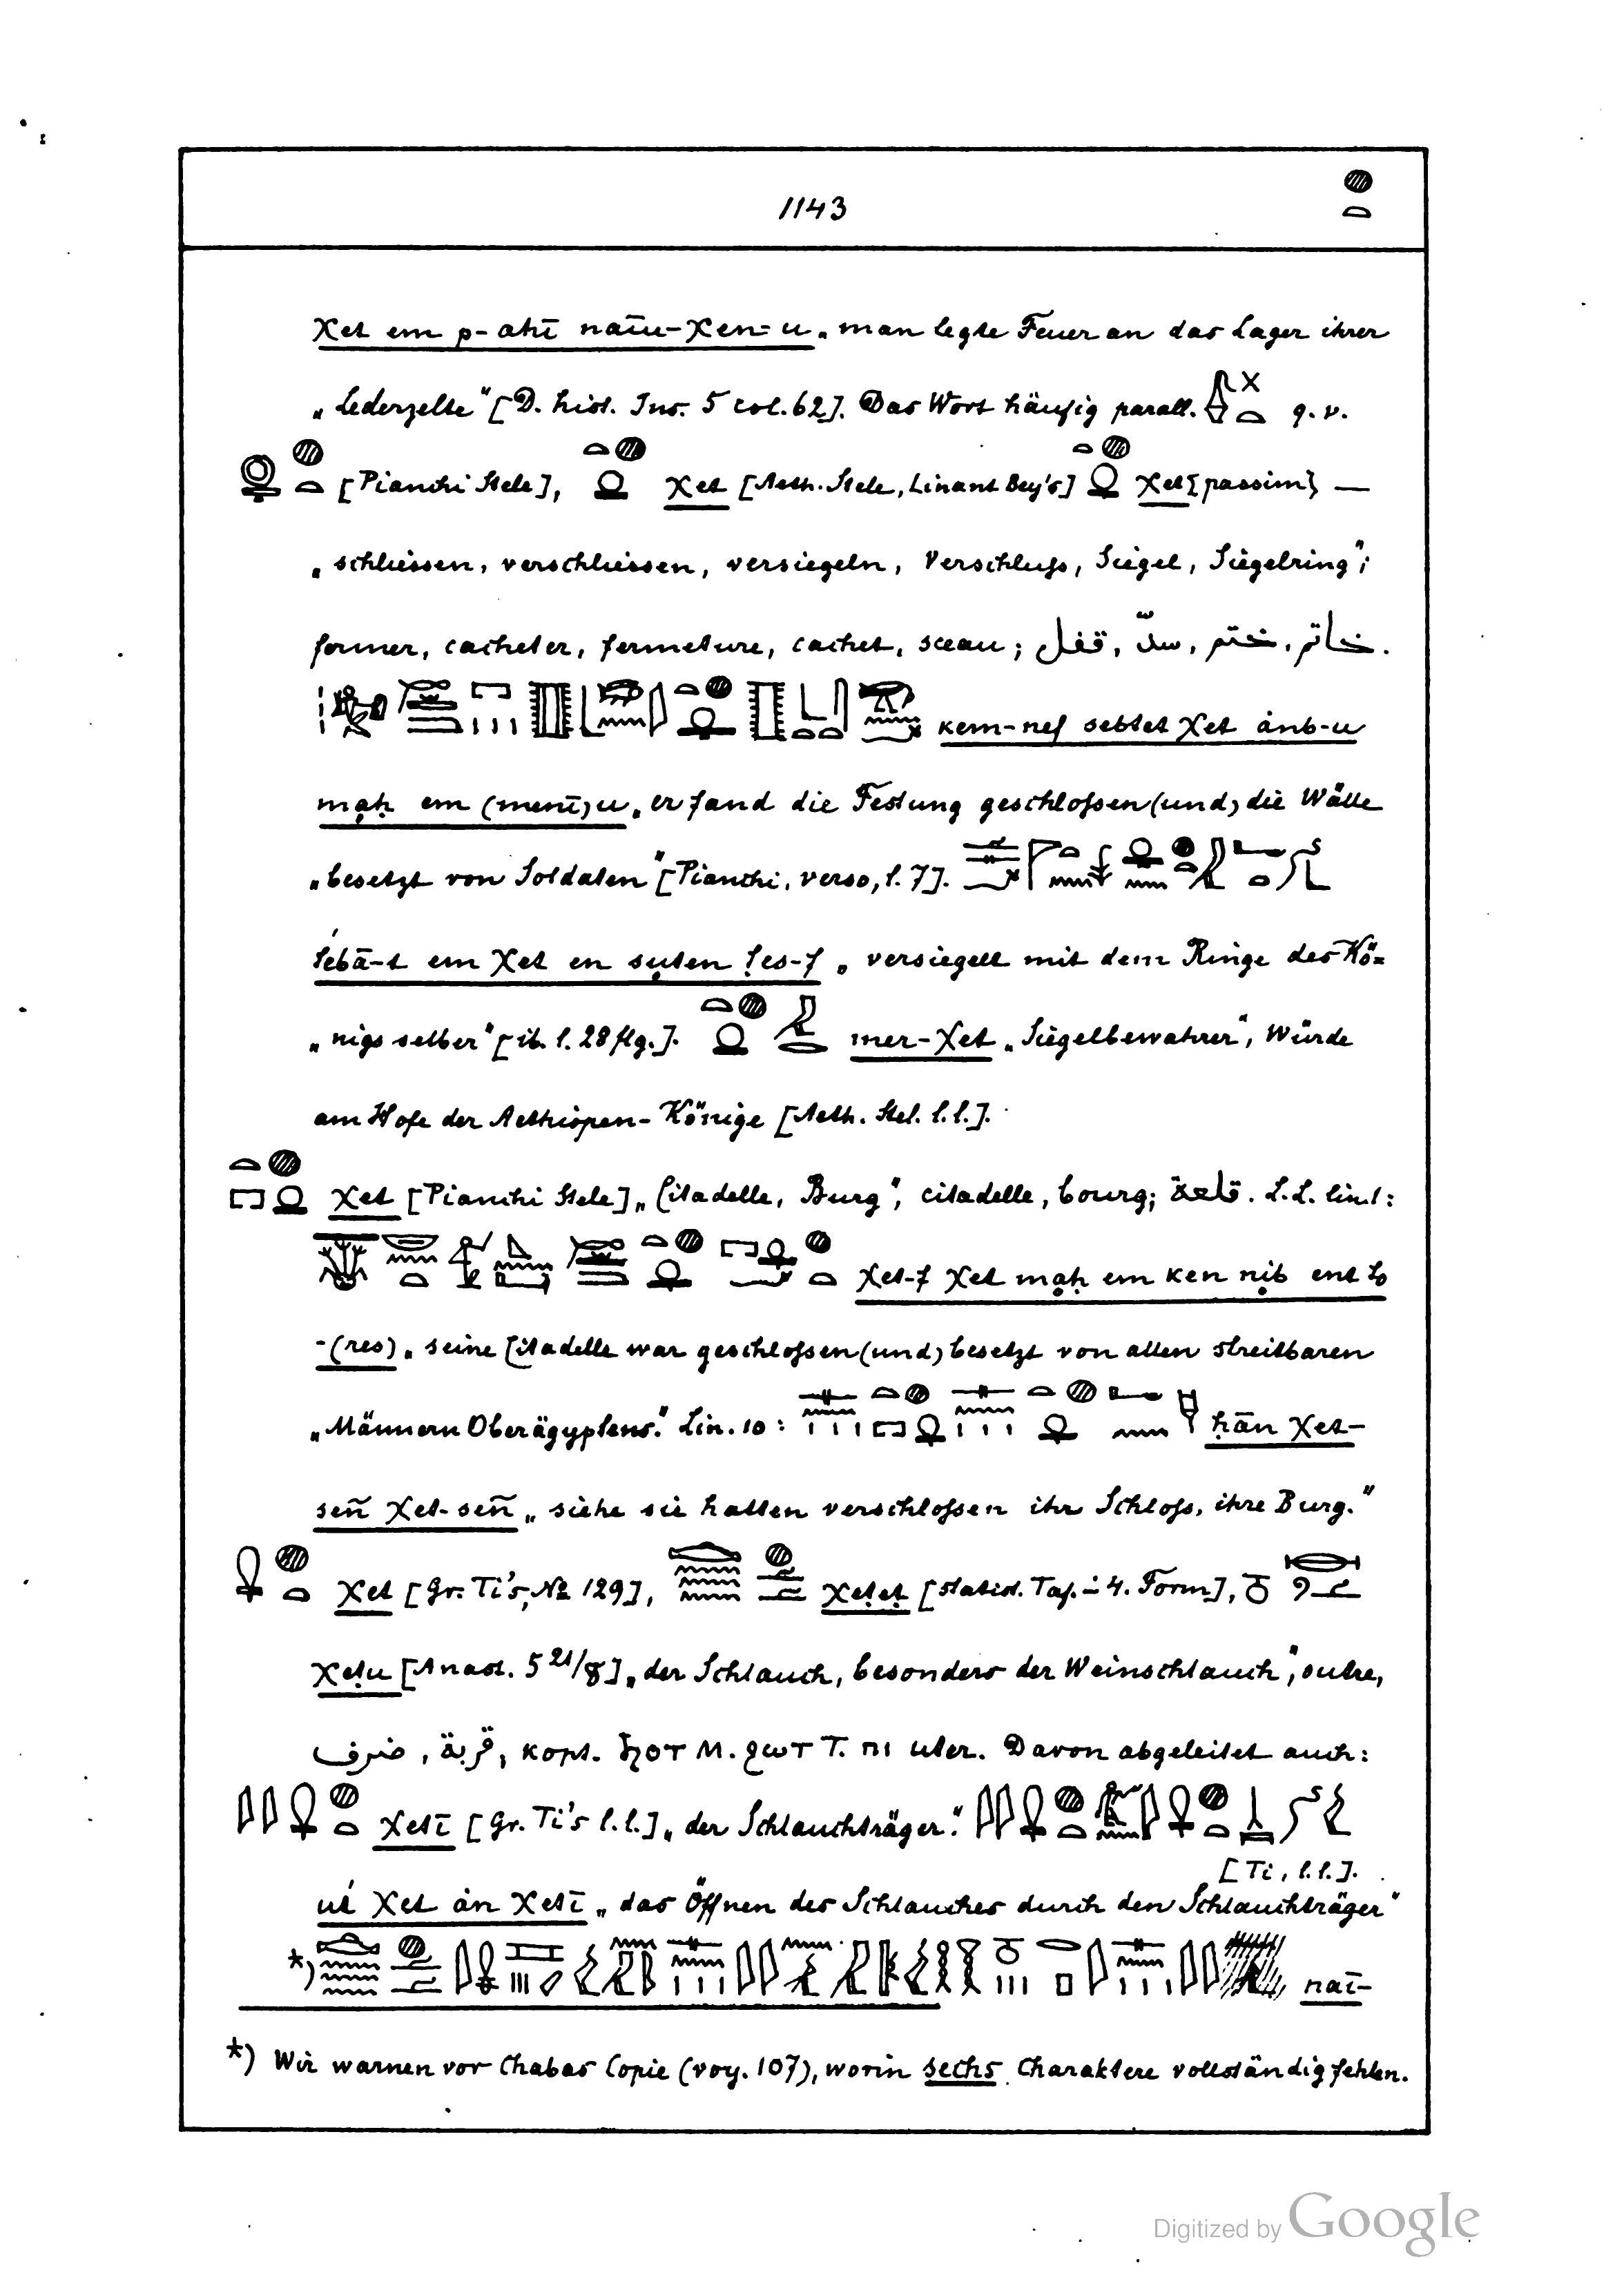 1143
χet em p-ahī naīu-χen-u „man legte Feuer an das Lager ihrer
„Lederzelte" [D. hist. Ins. 5 col. 62]. Das Wort häufig parall. q. v.
[Pianchi Stele], χet [Aeth. Stele, Linant Bey's] χet {passim} —
„schliessen, verschliessen, versiegeln, Verschluſs, Siegel, Siegelring";
fermer, cacheter, fermeture, cachet, sceau; خاتم, ختم, سدّ, قفل.
kem-nef sebtet χet ȧnb-u
mạḥ em (menī)u „er fand die Festung geschloſsen (und) die Wälle
„besetzt von Soldaten" [Pianchi, verso, l. 7].
em χet en suten ṭes-f „versiegelt mit dem Ringe des Kö=
„nigs selber" [ib. l. 28 flg.]. mer-χet „Siegelbewahrer", Würde
am Hofe der Aethiopen-Könige [Aeth. Stel. l. l.].
χet [Pianchi Stele] „Citadelle, Burg", citadelle, bourg; قلعة. L. L. lin. 1:
χet-f χet mạḥ em ken nịb ent to
-(res) „seine Citadelle war geschloſsen (und) besetzt von allen streitbaren
„Männern Oberägyptens." Lin. 10: ḥān χet-
señ χet-señ „siehe sie hatten verschlossen ihr Schloſs, ihre Burg."
χet [Gr. Ti's, № 129], χeṭeṭ [statist. Taf. 4. Form],
χeṭu [Anast. 5 21/8] „der Schlauch, besonders der Weinschlauch", outre,
قربة, ضرف, kopt. ϧⲟⲧ M. ϩⲱⲧ T. ⲡⲓ uter. Davon abgeleitet auch:
χetī [Gr. Ti's l. l.] „der Schlauchträger":
[Ti, l. l.].
χet ȧn χetī „das Öffnen des Schlauches durch den Schlauchträger"
*) naī-
*) Wir warnen vor Chabas Copie (voy. 107), worin sechs Charaktere vollständig fehlen.
Digitized by Google